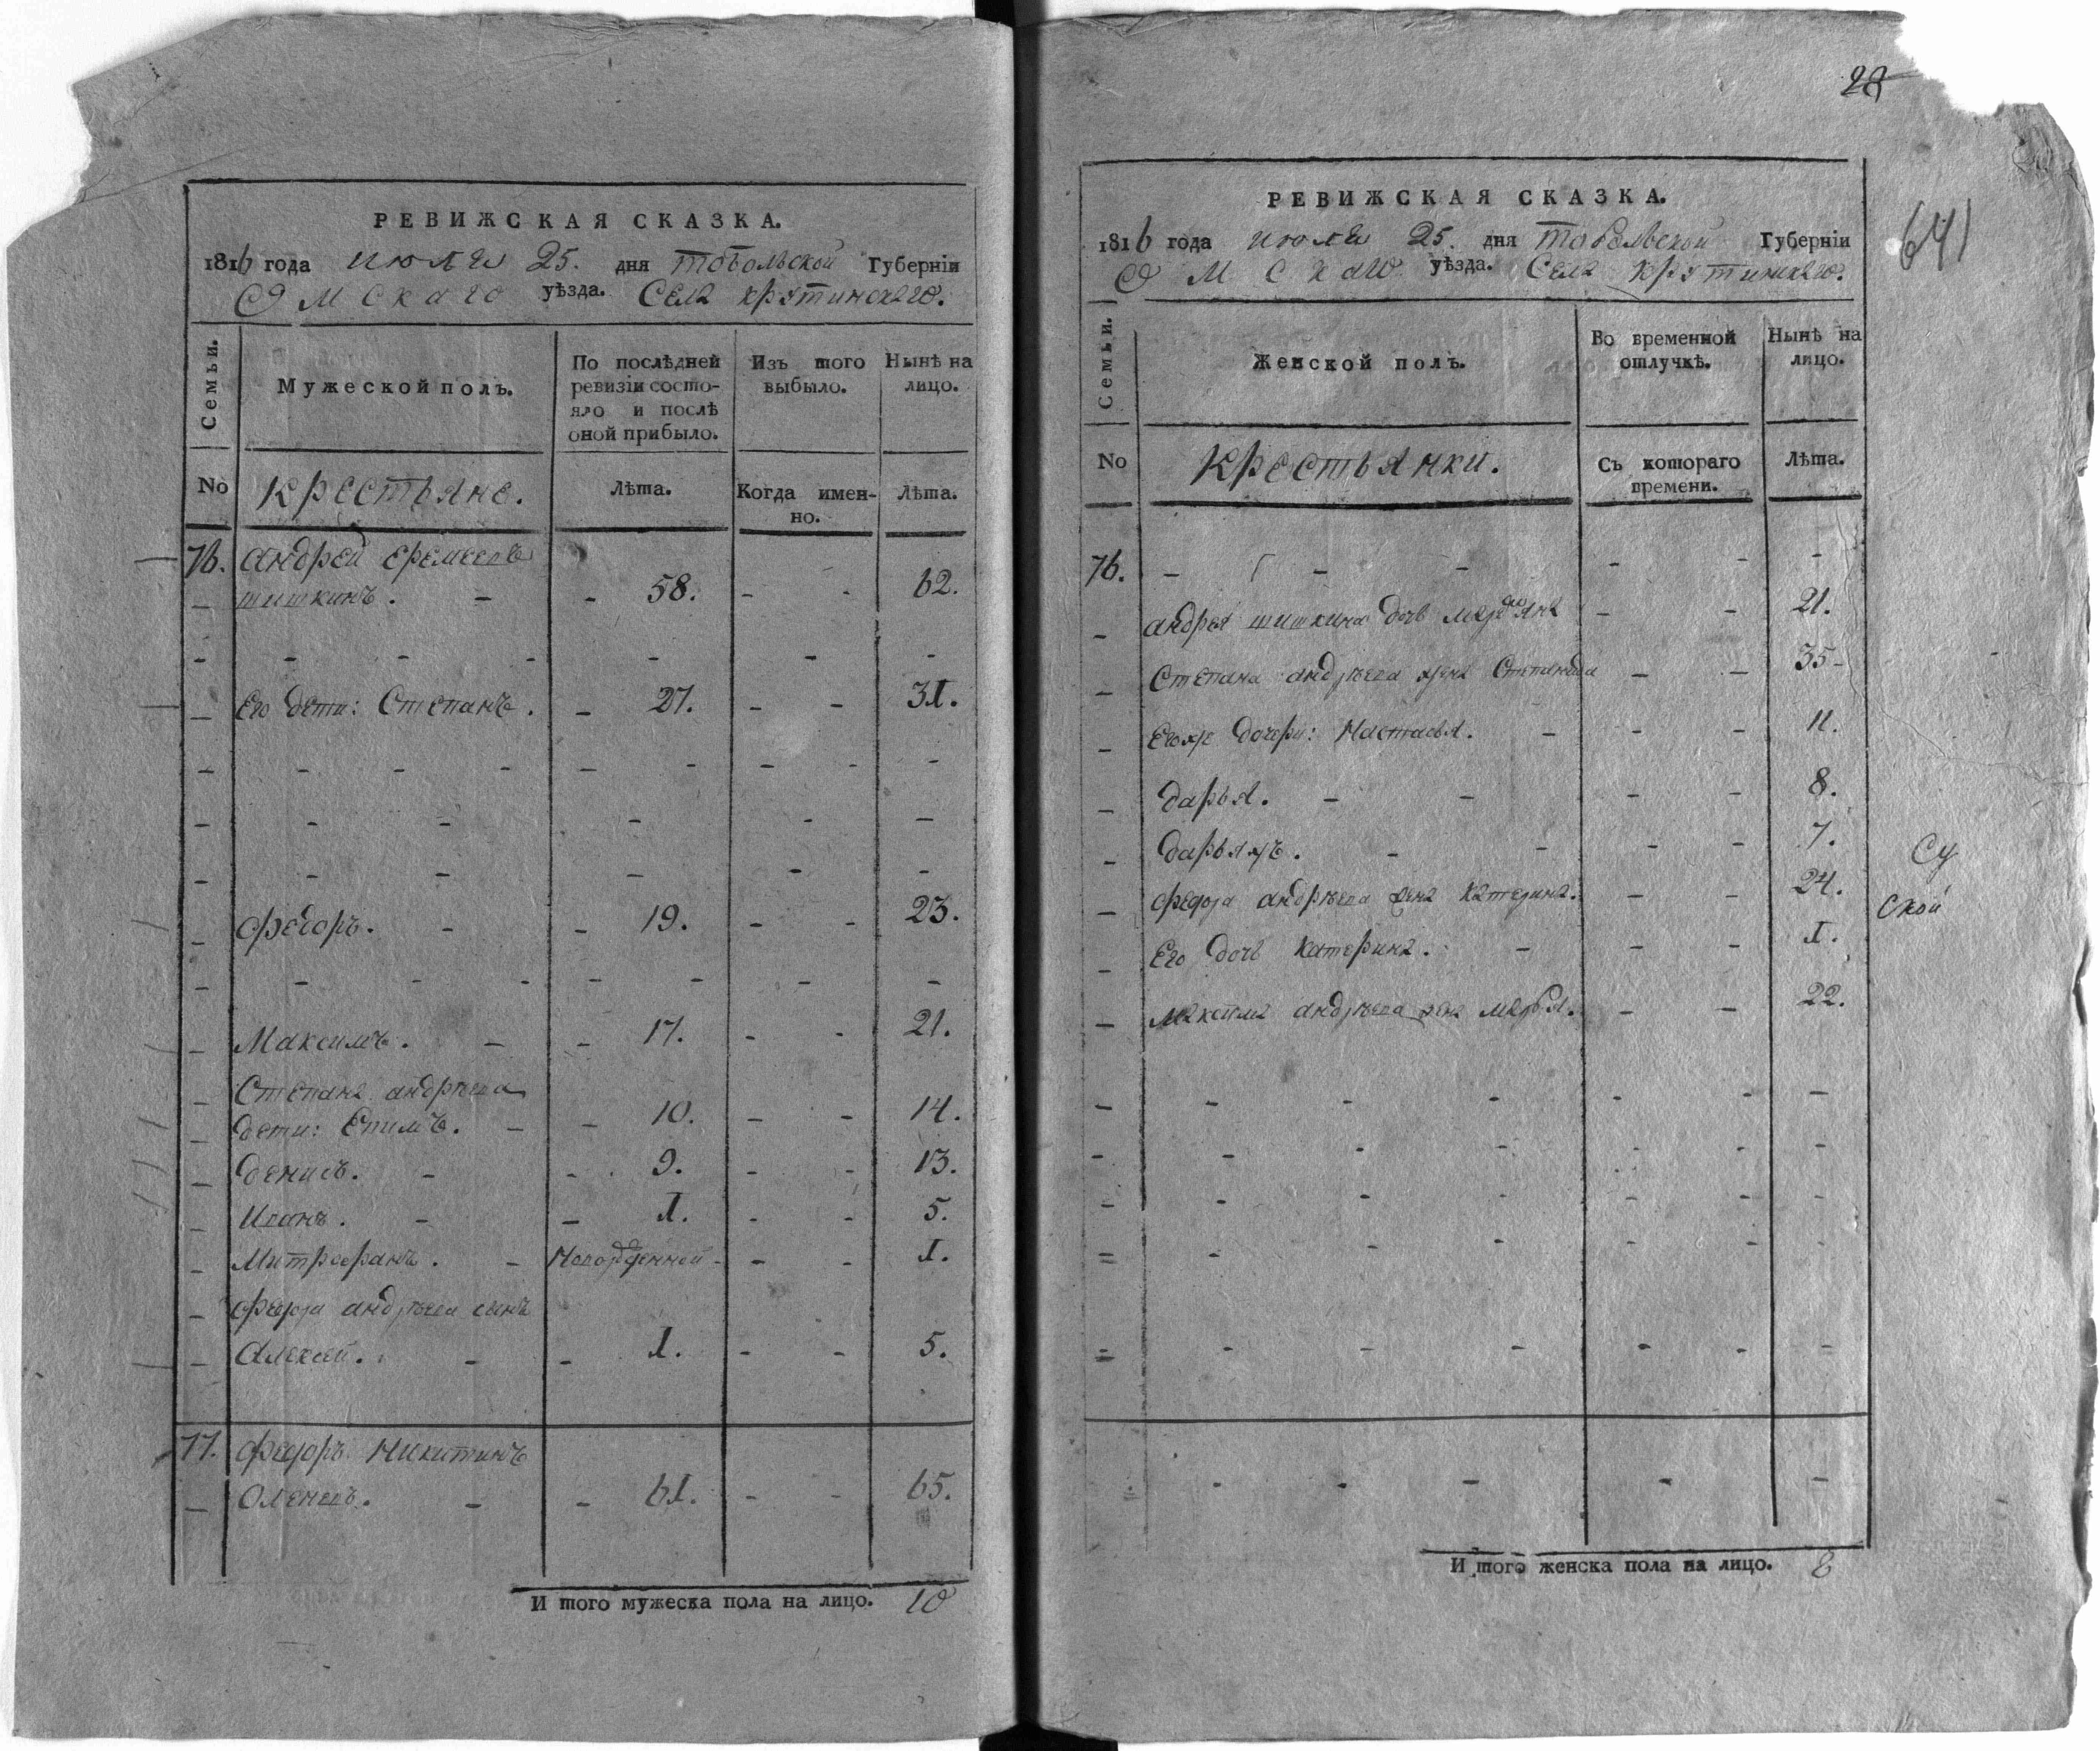 РЕВИЖСКАЯ СКАЗКА.
1816 года июля 25. дня Тобольской Губерніи
Омскаго уѣзда. Села Крутинскаго.
Семьи.
Мужеской полъ.
По послѣдней ревизіи состояло и послѣ оной прибыло.
Изъ того выбыло.
Нынѣ на лицо.
No
Крестьяне.
Лѣта.
Когда именно.
Лѣта.
76. Андрей Еремеевъ
Шишкинъ. - - 58. - - 62.
Его дети: Степанъ. - 27. - - 31.
Федоръ. - - 19. - - 23.
Максимъ. - - 17. - - 21.
Степана андрѣева
дети: Епимъ. - - 10. - - 14.
Денисъ. - - 9. - - 13.
Иванъ. - - 1. - - 5.
Митрофанъ. - Новорожденной - - - 1.
Федора андрѣева сынъ
Алексей. - - 1. - - 5.
77. Федоръ Никитинъ
Оленевъ. - - 61. - - 65.
И того мужеска пола на лицо. 10
28
641
РЕВИЖСКАЯ СКАЗКА.
1816 года июля 25. дня Тобольской Губерніи
Омскаго уѣзда. Села Крутинскаго.
Семьи.
Женской полъ.
Во временной отлучкѣ.
Нынѣ на лицо.
No
Крестьянки.
Съ котораго времени.
Лѣта.
76. - - - - - - -
андрея шишкина дочь - - 21.
Степана андрѣева жена Степанида - - 35-
Егоже дочери: Настасья. - - - 11.
Дарья. - - - - 8.
Дарьяжъ. - - - - 7.
Федора андрѣева жена Катерина. - - 24.
Его дочь Катерина. - - - 1.
Максима андрѣева жена Марья. - - 22.
Су
ской
И того женска пола на лицо. 8